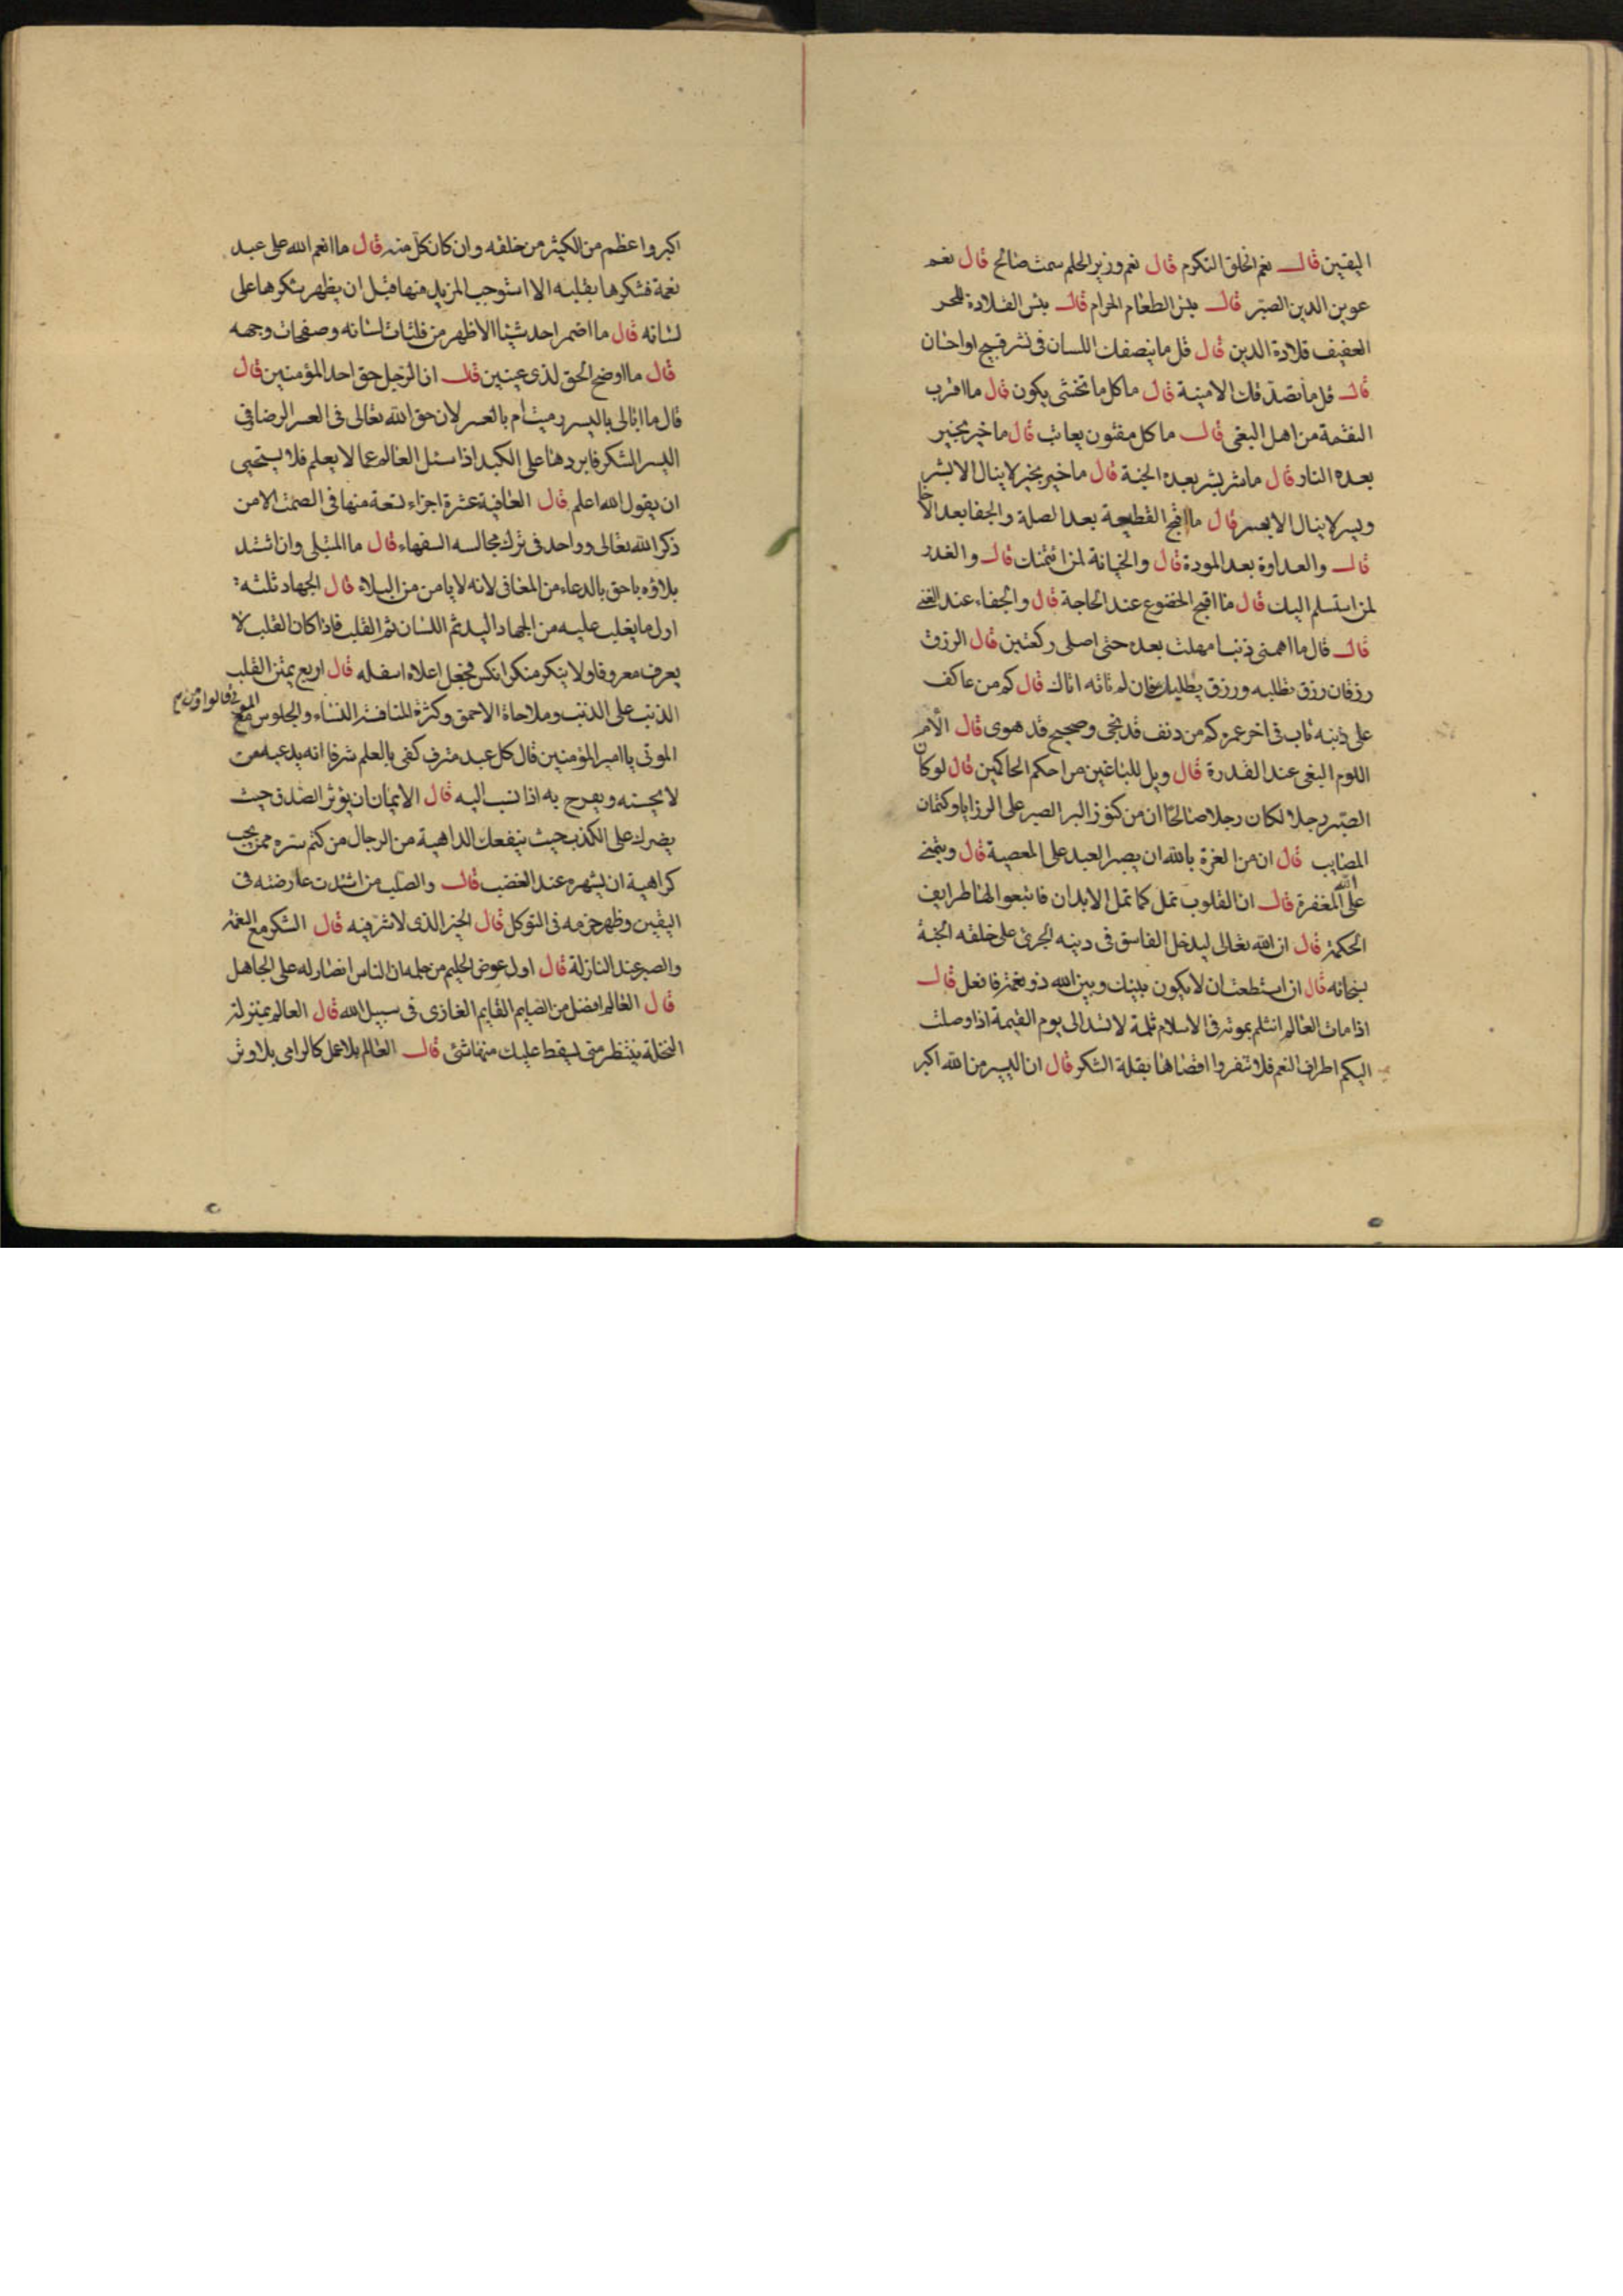 اليقين قال نعم الخلق التكرم قال نعم وزير الحلم سمت صالح قال نعم
عوين الدين الصبر قال بئس الطعام الحرام قال بئس القلادة للحر
العفيف قلادة الدين قال قل ما ينصفك اللسان فى نشر قبيح او احسان
قال قل ما تصدقك الامنية قال ما كل ما تخشى يكون قال ما اقرب
النقمة من اهل البغى قال ما كل مفتون يعاتب قال ما خير بخير
بعده النار قال ما شر بشر بعده الجنة قال ما خير بخير لا ينال الا بشر
ويسر لا ينال الا بعسر قال ما اقبح القطيعة بعد الصلة والجفا بعد الاخا
قال والعداوة بعد المودة قال والخيانة لمن ائتمنك قال والغدر
لمن استسلم اليك قال ما اقبح الخضوع عند الحاجة قال والجفاء عند الغنى
قال قال ما اهمنى ذنب امهلت بعده حتى اصلى ركعتين قال الرزق
رزقان رزق تطلبه ورزق يطلبك فان لم تاته اتاك قال كم من عاكف
على ذنبه تاب فى اخر عمره كم من دنف قد نجى وصحيح قد هوى قال الأم
اللوم البغى عند القدرة قال ويل للباغين من احكم الحاكمين قال لو كان
الصبر رجلا لكان رجلا صالحا ان من كنوز البر الصبر على الرزايا وكتمان
المصايب قال ان من الغرة بالله ان يصر العبد على المعصية قال ويتمنى
على الله المغفرة قال ان القلوب تمل كما تمل الابدان فابتغوا لها طرايف
الحكمة قال ان الله تعالى ليدخل الفاسق فى دينه الجرئ على خلقه الجنة
بسخائه قال ان استطعت ان لا يكون بينك وبين الله ذو نعمة فافعل قال
اذا مات العالم انثلم بموته فى الاسلام ثلمة لا تسد الى يوم القيمة اذا وصلت
اليكم اطراف النعم فلا تنفروا اقصاها بقلة الشكر قال ان اليسير من الله اكبر
اكبر واعظم من الكثير من خلقه وان كان كل منه قال ما انعم الله على عبد
نعمة فشكرها بقلبه الا استوجب المزيد منها قبل ان يظهر شكرها على
لسانه قال ما اضمر احد شيئا الا ظهر من فلتات لسانه وصفحات وجهه
قال ما اوضح الحق لذى عينين قال ان الرحيل حق احد المؤمنين قال
قال ما ابالى باليسر رميت ام بالعسر لان حق الله تعالى فى العسر الرضا وفى
اليسر الشكر فابردها على الكبد اذا سئل العالم عما لا يعلم فلا يستحيى
ان يقول الله اعلم قال العافية عشرة اجزاء تسعة منها فى الصمت الا من
ذكر الله تعالى وواحد فى ترك مجالسه السفهاء قال ما المبتلى وان اشتد
بلاؤه باحق بالدعاء من المعافى لانه لا يامن من البلاء قال الجهاد ثلثه
اول ما يغلب عليه من الجهاد اليد ثم اللسان ثم القلب فاذا كان القلب لا
يعرف معروفا ولا ينكر منكرا نكس فجعل اعلاه اسفله قال اربع يمتن القلب
الذنب على الذنب وملاحاة الاحمق وكثرة المنافثة النساء والجلوس مع
الموتى قالوا ومن هم
الموتى يا امير المؤمنين قال كل عبد مترف كفى بالعلم شرفا انه يدعيه من
لا يحسنه ويفرح به اذا نسب اليه قال الايمان ان يؤثر الصدق حيث
يضرك على الكذب حيث ينفعك الداهية من الرجال من كتم سره ممن يحب
كراهية ان يشهره عند الغضب قال والصلب من اشتدت عارضته فى
اليقين وظهر حزمه فى التوكل قال الخير الذى لا شر فيه قال الشكر مع النعمة
والصبر عند النازلة قال اول عوض الحليم من حلمه ان الناس انصار له على الجاهل
قال العالم افضل من الصايم القايم الغازى فى سبيل الله قال العالم بمنزلة
النخلة ينتظر متى يسقط عليك منها شئ قال العالم بلا عمل كالرامى بلا وتر